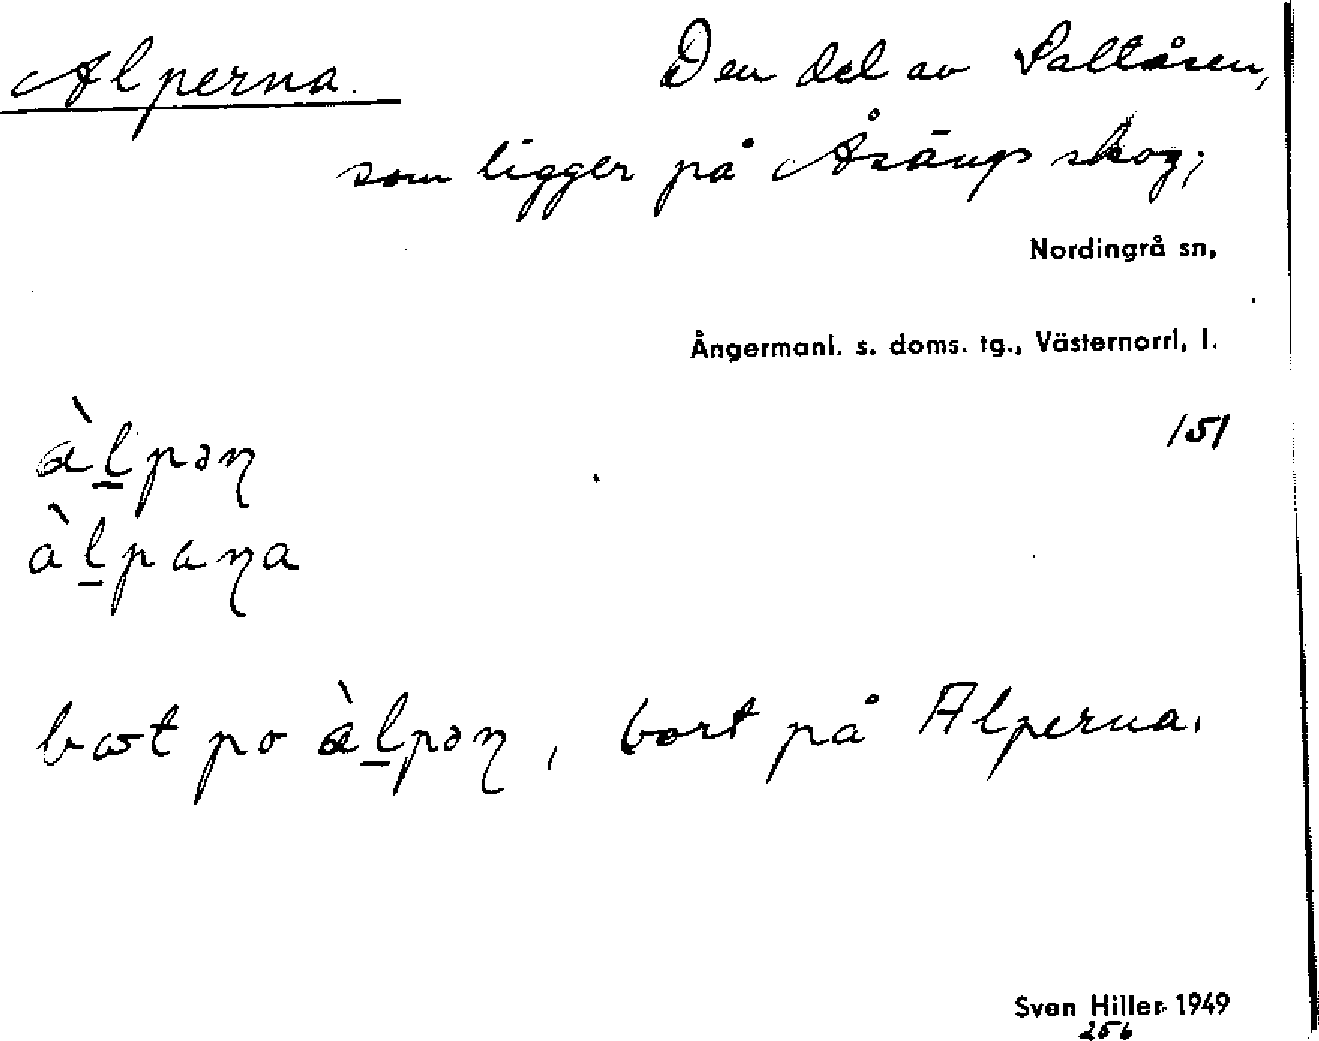 Alperna. Den del av Saltåsen,
som ligger på Åsängs skog;
Nordingrå sn,
Ångermanl. s. doms. tg., Västernorrl. l.
151
àl̲pəɳ
àl̲paɳa
po àl̲pəɳ, bort på Alperna.
Sven Hiller 1949
256